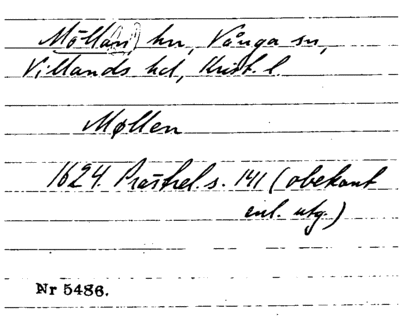 Möllan, hn, Vånga sn,
Villands hd, Krist. l
Møllen
1624. Prästrel. s. 141 (obekant
enl. utg.)
Nr 5486.